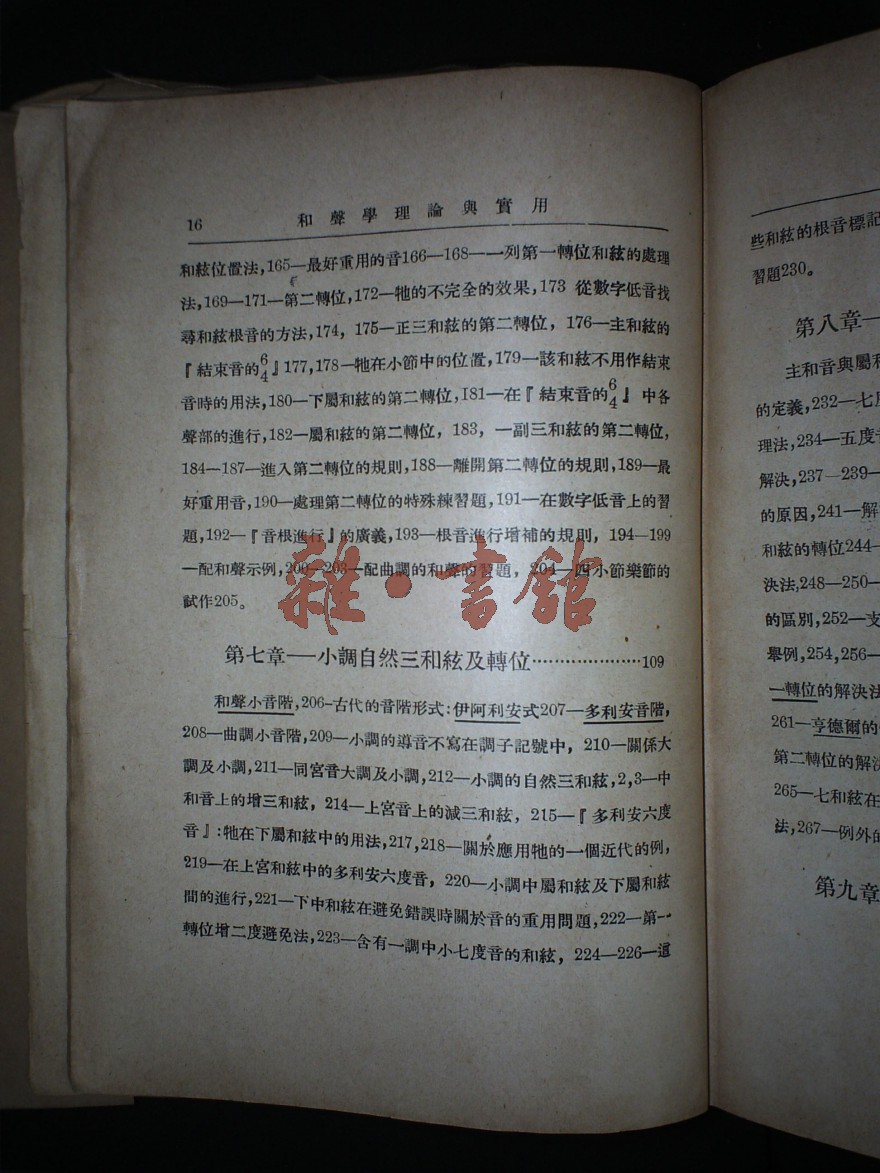 16 和聲學理論與實用
和絃位置法,165—最好重用的音166—168—一列第一轉位和絃的處理
法,169—171—第二轉位,172—牠的不完全的效果,173 從數字低音找
尋和絃根音的方法,174, 175—正三和絃的第二轉位, 176—主和絃的
『結束音的6/4』177,178—牠在小節中的位置,179—該和絃不用作結束
音時的用法,180—下屬和絃的第二轉位,181—在『結束音的6/4』中各
聲部的進行,182—屬和絃的第二轉位, 183, 一副三和絃的第二轉位,
184—187—進入第二轉位的規則,188—離開第二轉位的規則,189—最
好重用音,190—處理第二轉位的特殊練習題,191—在數字低音上的習
題,192—『音根進行』的廣義,193—根音進行增補的規則, 194—199
—配和聲示例,200—203—配曲調的和聲的習題, 204—四小節樂節的
試作205。
雜·書館
第七章——小調自然三和絃及轉位····················109
和聲小音階,206-古代的音階形式:伊阿利安式207—多利安音階,
208—曲調小音階,209—小調的導音不寫在調子記號中, 210—關係大
調及小調,211—同宮音大調及小調,212—小調的自然三和絃,2,3—中
和音上的增三和絃, 214—上宮音上的減三和絃, 215—『多利安六度
音』:牠在下屬和絃中的用法,217,218—關於應用牠的一個近代的例,
219—在上宮和絃中的多利安六度音, 220—小調中屬和絃及下屬和絃
間的進行,221—下中和絃在避免錯誤時關於音的重用問題,222—第一
轉位增二度避免法,223—含有一調中小七度音的和絃, 224—226—這
些和絃的根音標記
習題230。
第八章—
主和音與屬和
的定義,232—七度
理法,234—五度音
解決,237—239—
的原因,241—解
和絃的轉位244—
決法,248—250—
的區別,252—支
舉例,254,256—
一轉位的解決法
261—亨德爾的
第二轉位的解決
265—七和絃在
法,267—例外的
第九章